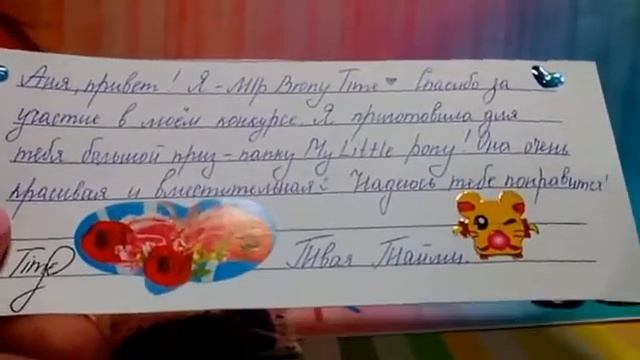 Аня, привет! Я - Mlp Brony Time ♥ Спасибо за
участие в моём конкурсе. Я приготовила для
тебя большой приз - папку My Little pony! Она очень
красивая и вместительная: Надеюсь тебе понравится!
Time Твоя Тайми.